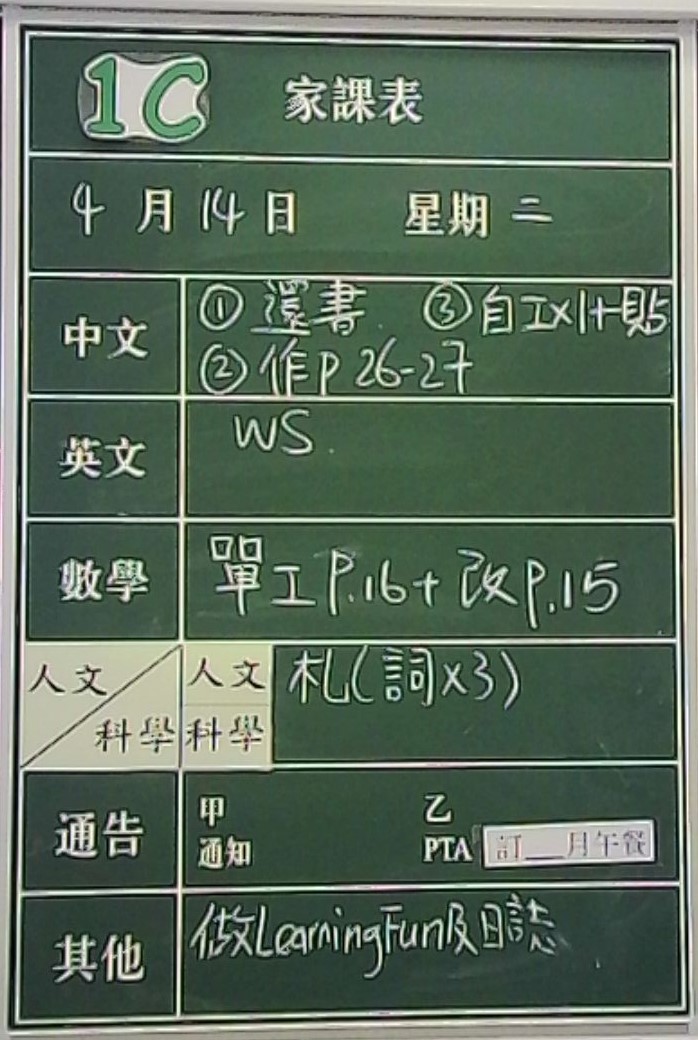 1C 家課表
4月14日 星期二
中文 ①還書 ③自工x1+貼
②作p 26-27
英文 WS.
數學 單工 P.16+改P.15
人文 人文 札(詞x3)
科學 科學
通告 甲 乙
通知 PTA 訂__月午餐
其他 做LearningFun及日誌